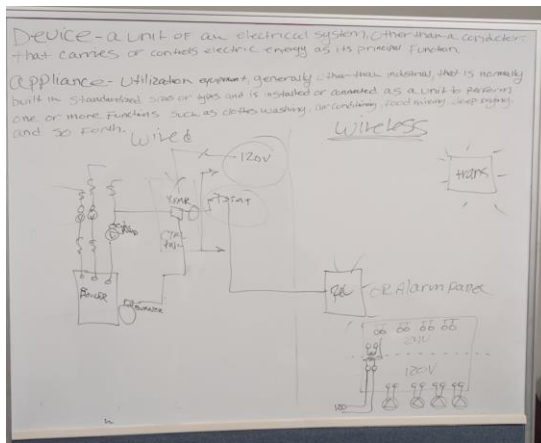 Device - a unit of an electrical system, other than a conductor
that carries or controls electric energy as its principal function.
Appliance - Utilization equipment, generally other than industrial, that is normally
built in standardized sizes or types and is installed or connected as a unit to perform
one or more functions such as clothes washing, air conditioning, food mixing, deep frying,
and so forth.
Wired
Wireless
120V
trans
XFMR
CTRL
Boiler
Burner
or Alarm panel
24V
120V